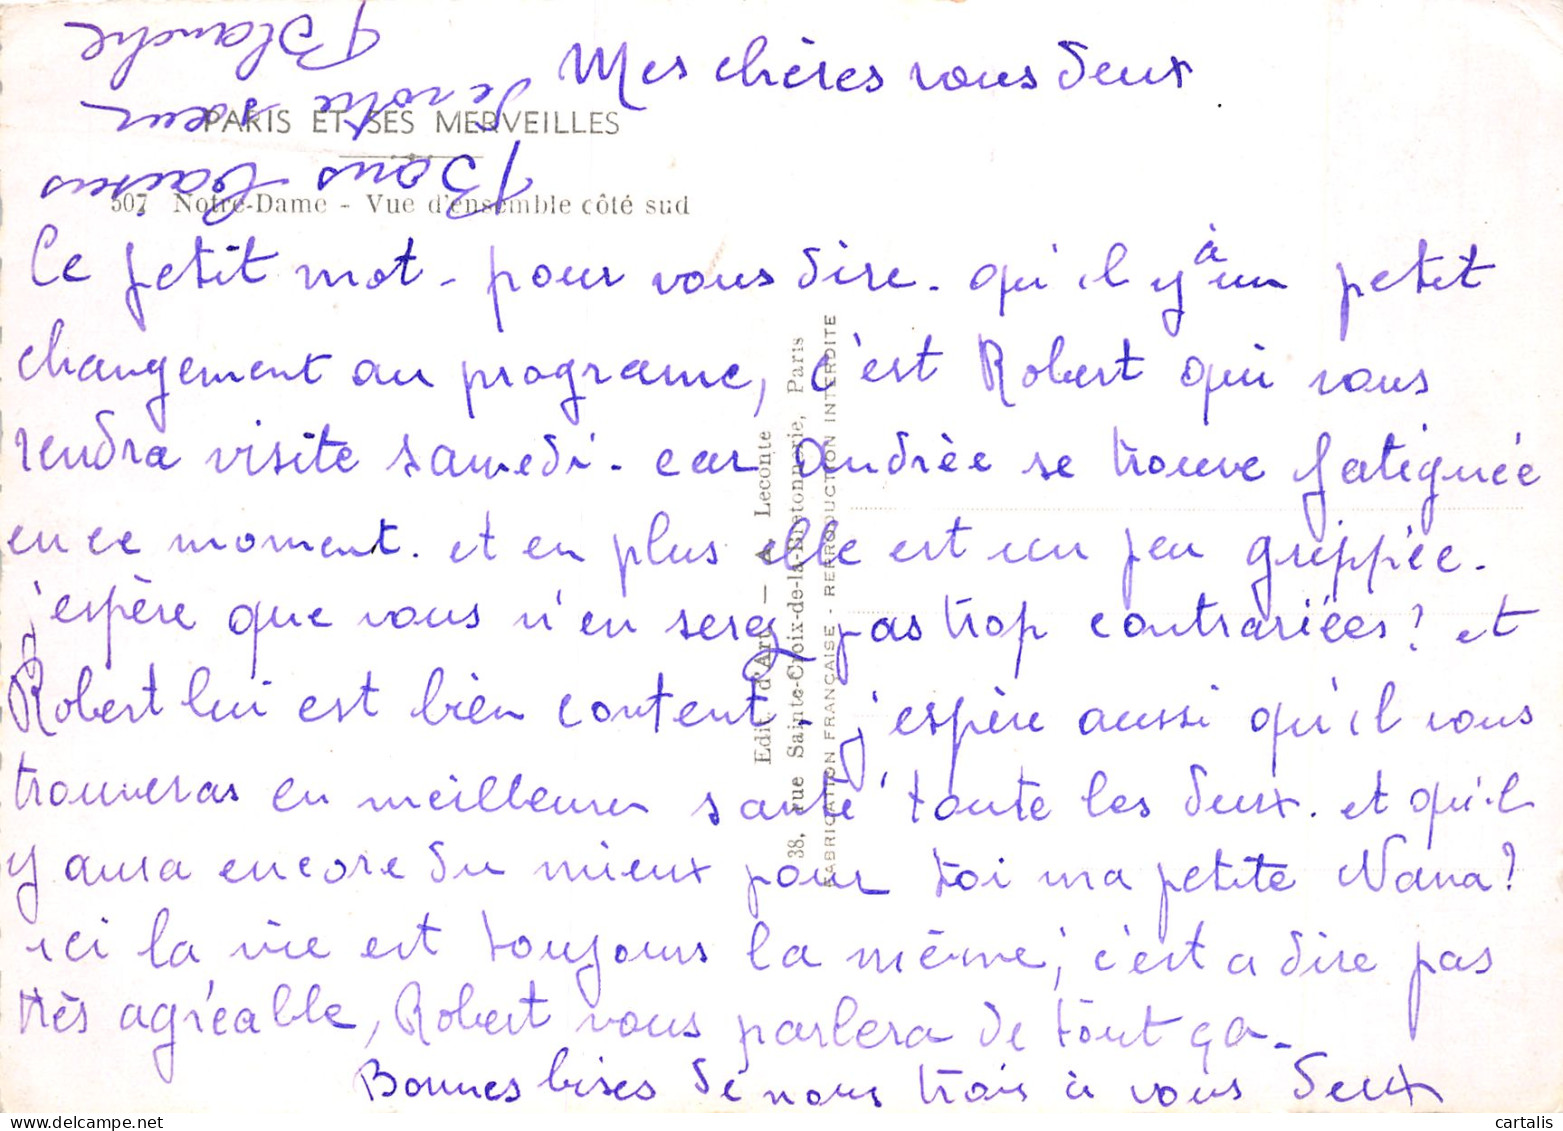 Mes chères vous deux
PARIS ET SES MERVEILLES
507 Notre-Dame - Vue d'ensemble côté sud
Ce petit mot - pour vous dire - qu'il y à un petit
changement au programe, c'est Robert qui vous
rendra visite samedi - car Andrèe se trouve fatiguée
en ce moment. et en plus elle est un peu grippée.
j'espère que vous n'en serez pas trop contrariées? et
Robert lui est bien content - j'espère aussi qu'il vous
trouveras en meilleure santé toute les deux. et qu'il
y aura encore du mieux pour toi ma petite Nana?
ici la vie est toujours la même, c'est a dire pas
très agréable, Robert vous parlera de tout ça -
Bonnes bises de nous trois à vous deux
Bons baisers
de votre sœur
Blanche
Edit. d'Art - A. Leconte
38, rue Sainte-Croix-de-la-Bretonnerie, Paris
FABRICATION FRANÇAISE - REPRODUCTION INTERDITE
www.delcampe.net
cartalis